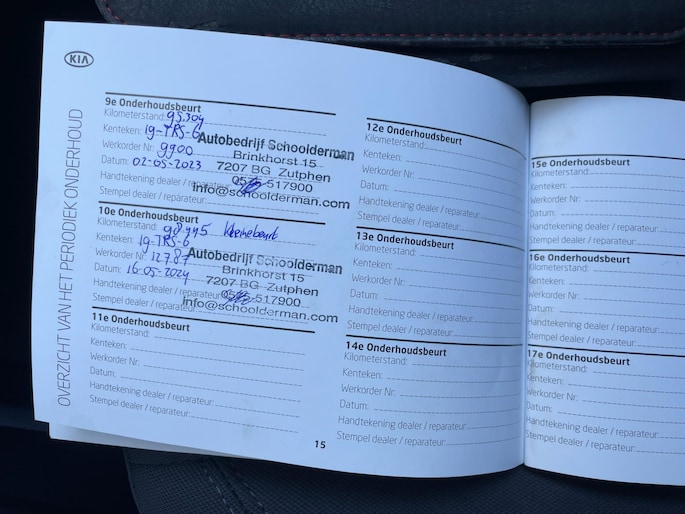 KIA
OVERZICHT VAN HET PERIODIEK ONDERHOUD
9e Onderhoudsbeurt
Kilometerstand: 95.304
Kenteken: 19-TRS-6
Werkorder Nr: 9900
Datum: 02-05-2023
Handtekening dealer / reparateur:
Stempel dealer / reparateur:
Autobedrijf Schoolderman
Brinkhorst 15
7207 BG Zutphen
0575-517900
info@schoolderman.com
10e Onderhoudsbeurt
Kilometerstand: 98.445
Kenteken: 19-TRS-6
Werkorder Nr: 12787
Datum: 16-05-2024
Handtekening dealer / reparateur:
Stempel dealer / reparateur:
Autobedrijf Schoolderman
Brinkhorst 15
7207 BG Zutphen
0575-517900
info@schoolderman.com
11e Onderhoudsbeurt
Kilometerstand:
Kenteken:
Werkorder Nr:
Datum:
Handtekening dealer / reparateur:
Stempel dealer / reparateur:
15
12e Onderhoudsbeurt
Kilometerstand:
Kenteken:
Werkorder Nr:
Datum:
Handtekening dealer / reparateur:
Stempel dealer / reparateur:
13e Onderhoudsbeurt
Kilometerstand:
Kenteken:
Werkorder Nr:
Datum:
Handtekening dealer / reparateur:
Stempel dealer / reparateur:
14e Onderhoudsbeurt
Kilometerstand:
Kenteken:
Werkorder Nr:
Datum:
Handtekening dealer / reparateur:
Stempel dealer / reparateur:
15e Onderhoudsbeurt
Kilometerstand:
Kenteken:
Werkorder Nr:
Datum:
Handtekening dealer / reparateur:
Stempel dealer / reparateur:
16e Onderhoudsbeurt
Kilometerstand:
Kenteken:
Werkorder Nr:
Datum:
Handtekening dealer / reparateur:
Stempel dealer / reparateur:
17e Onderhoudsbeurt
Kilometerstand:
Kenteken:
Werkorder Nr:
Datum:
Handtekening dealer / reparateur:
Stempel dealer / reparateur: